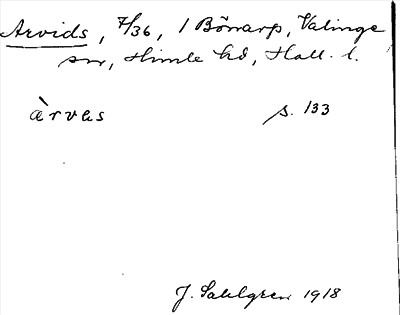 Arvids, 7/36, 1 Bönarp, Valinge
sn, Himle hd, Hall. l.
àrvas s. 133
J. Sahlgren 1918